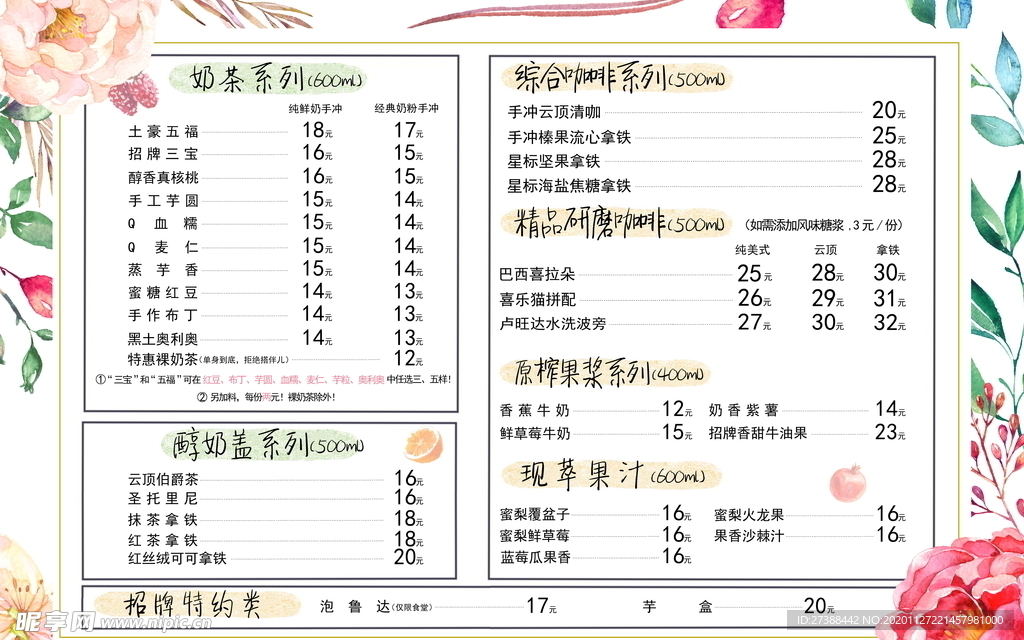 奶茶系列(600mL)
纯鲜奶手冲 经典奶粉手冲
土豪五福 18元 17元
招牌三宝 16元 15元
醇香真核桃 16元 15元
手工芋圆 15元 14元
Q血糯 15元 14元
Q麦仁 15元 14元
蒸芋香 15元 14元
蜜糖红豆 14元 13元
手作布丁 14元 13元
黑土奥利奥 14元 13元
特惠裸奶茶(单身到底，拒绝搭伴儿) 12元
①“三宝”和“五福”可在 红豆、布丁、芋圆、血糯、麦仁、芋粒、奥利奥 中任选三、五样！
② 另加料，每份两元！裸奶茶除外！
醇奶盖系列(500mL)
云顶伯爵茶 16元
圣托里尼 16元
抹茶拿铁 18元
红茶拿铁 18元
红丝绒可可拿铁 20元
综合咖啡系列(500mL)
手冲云顶清咖 20元
手冲榛果流心拿铁 25元
星标坚果拿铁 28元
星标海盐焦糖拿铁 28元
精品研磨咖啡(500mL) (如需添加风味糖浆 .3元/份)
纯美式 云顶 拿铁
巴西喜拉朵 25元 28元 30元
喜乐猫拼配 26元 29元 31元
卢旺达水洗波旁 27元 30元 32元
原榨果浆系列(400mL)
香蕉牛奶 12元 奶香紫薯 14元
鲜草莓牛奶 15元 招牌香甜牛油果 23元
现萃果汁(600mL)
蜜梨覆盆子 16元 蜜梨火龙果 16元
蜜梨鲜草莓 16元 果香沙棘汁 16元
蓝莓瓜果香 16元
招牌特约类 泡鲁达(仅限食堂) 17元 芋盒 20元
昵享网 www.nipic.cn
ID:27388442 NO:20201127221457981000